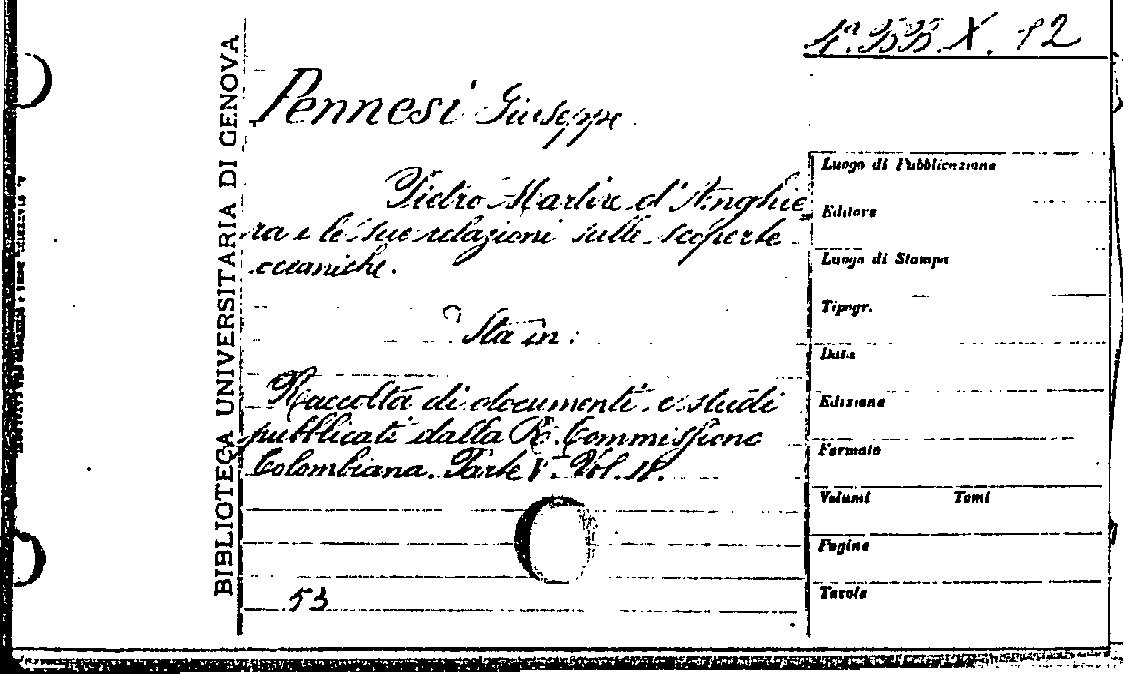 4ª. 3533. X. 12
BIBLIOTECA UNIVERSITARIA DI GENOVA
Pennesi Giuseppe
Pietro Martire d'Anghie
ra e le sue relazioni sulle scoperte
oceaniche.
Sta in:
Raccolta di documenti e studi
pubblicati dalla R. Commissione
Colombiana. Parte V. Vol. II.
53
Luogo di Pubblicazione
Editore
Luogo di Stampa
Tipogr.
Data
Edizione
Formato
Volumi Tomi
Pagine
Tavole